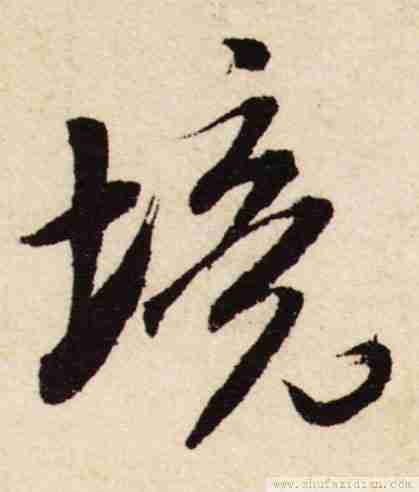 境
www.shufazidian.com